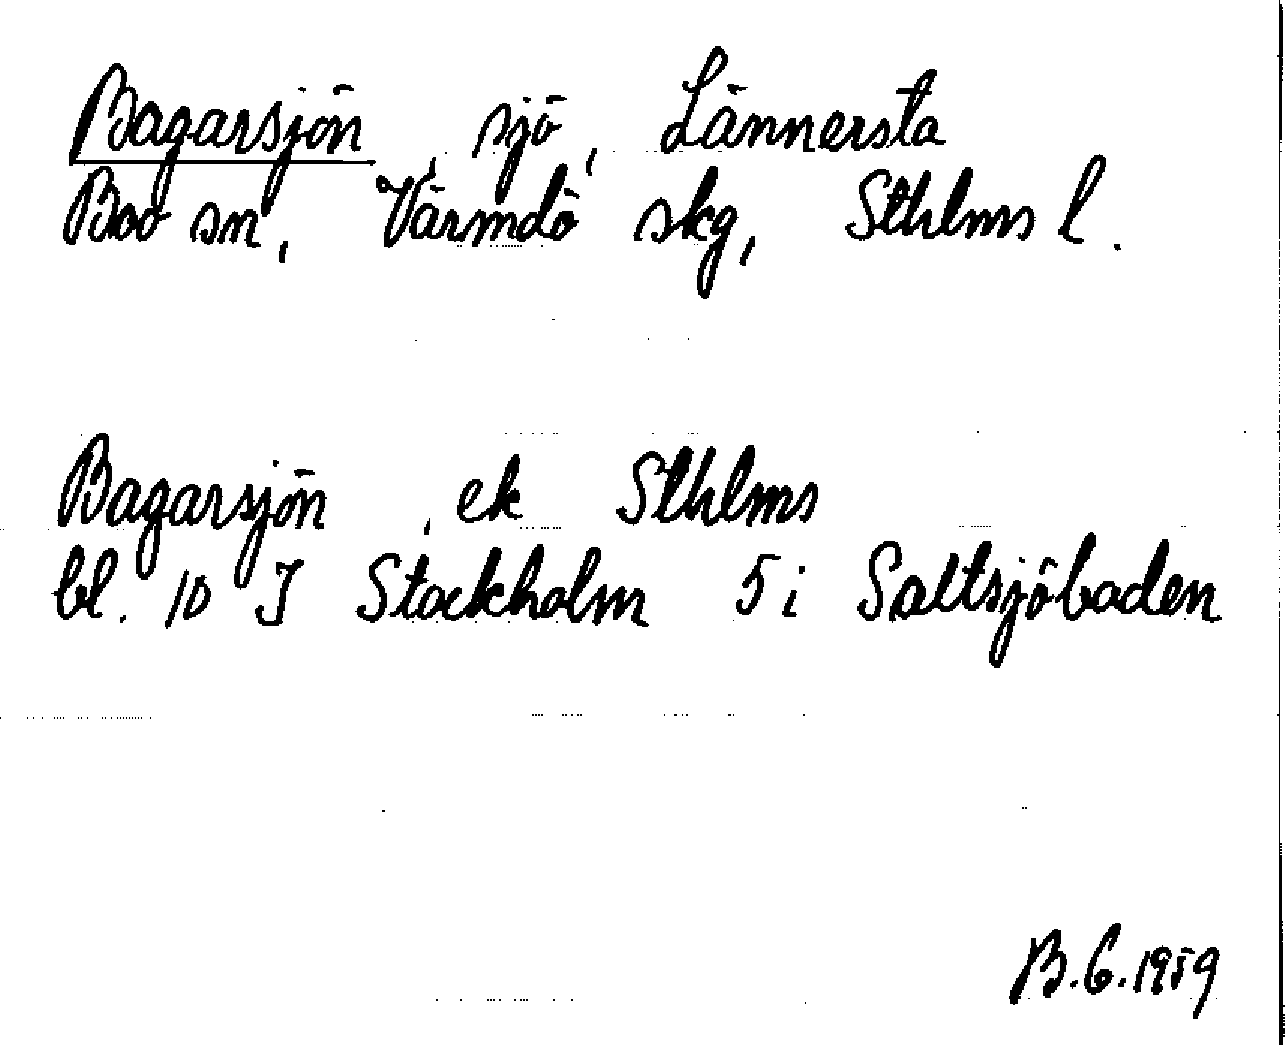 Bagarsjön, sjö, Lännersta
Boo sn, Värmdö skg, Sthlms l.
Bagarsjön, ek Sthlms
bl. 10 I Stockholm 5i Saltsjöbaden
B.G.1959